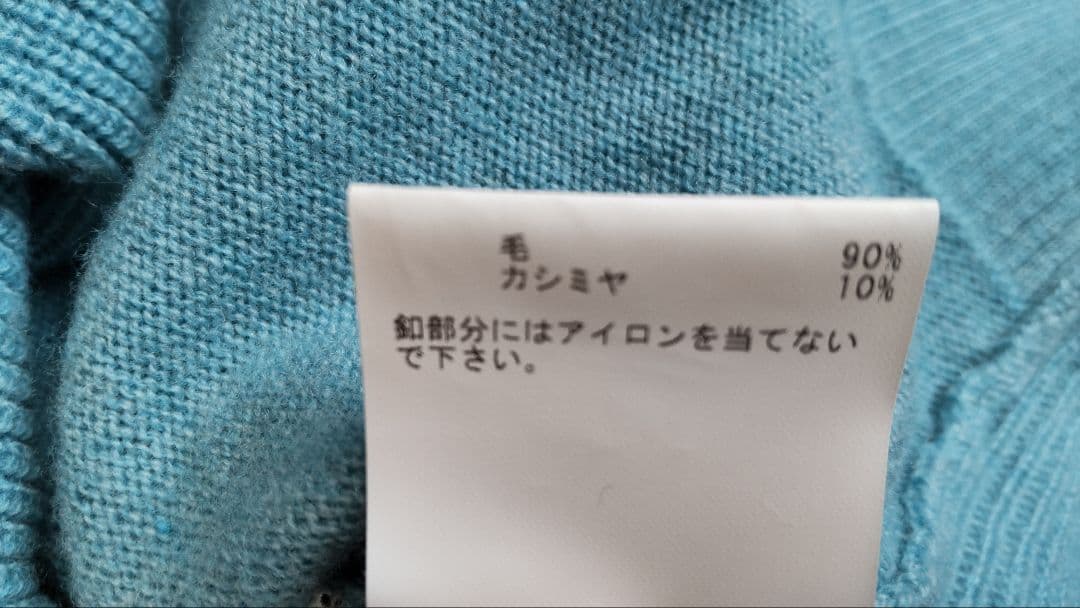 毛 90%
カシミヤ 10%
釦部分にはアイロンを当てない
で下さい。